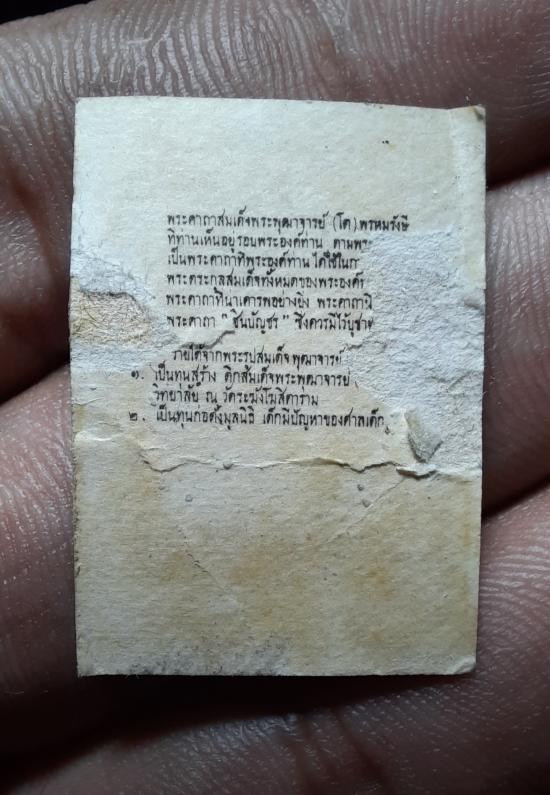 พระคาถาสมเด็จพระพุฒาจารย์ (โต) พรหมรังษี
ที่ท่านเห็นอยู่รอบพระองค์ท่าน ตามพระ
เป็นพระคาถาที่พระองค์ท่านได้ใช้ในก
พระตระกูลสมเด็จทั้งหมดของพระองค์ท
พระคาถาที่น่าเคารพอย่างยิ่ง พระคาถานี้
พระคาถา " ชินบัญชร " จึงควรมีไว้บูชา
รายได้จากพระรูปสมเด็จพุฒาจารย์
๑. เป็นทุนสร้าง ตึกสมเด็จพระพุฒาจารย์
วิทยาลัย ณ วัดระฆังโฆสิตาราม
๒. เป็นทุนก่อตั้งมูลนิธิ เด็กมีปัญหาของศาลเด็ก